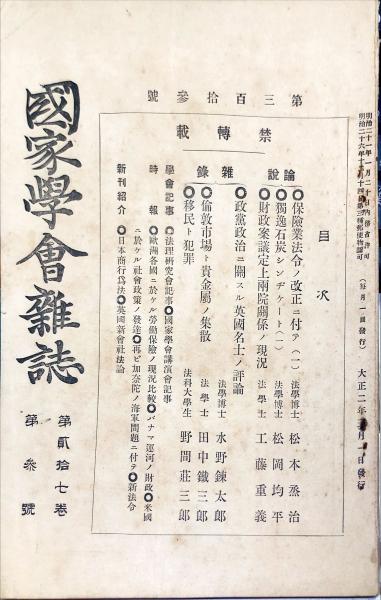 明治二十一年一月二十日內務省許可
明治二十六年十二月十四日第三種郵便物認可
(每月一回發行)
大正二年三月一日發行
第三百拾參號
禁轉載
目次
論說
●保險業法令ノ改正ニ付テ(二) 法學博士 松本烝治
●獨逸石炭シンヂケート(一) 法學博士 松岡均平
●財政案議定上兩院關係ノ現況 法學士 工藤重義
雜錄
●政黨政治ニ關スル英國名士ノ評論 法學博士 水野鍊太郎
●倫敦市場ト貴金屬ノ集散 法學士 田中鐵三郎
●移民ト犯罪 法科大學生 野間莊三郎
學會記事 ●法理研究會記事●國家學會講演會記事
時報 ●歐洲各國ニ於ケル勞働保險ノ現況比較●パナマ運河ノ財政●米國
ニ於ケル社會政策ノ發達●再ビ加奈陀ノ海軍問題ニ付テ●新法令
新刊紹介 ●日本商行爲法●英國新會社法論
國家學會雜誌
第貳拾七卷
第參號